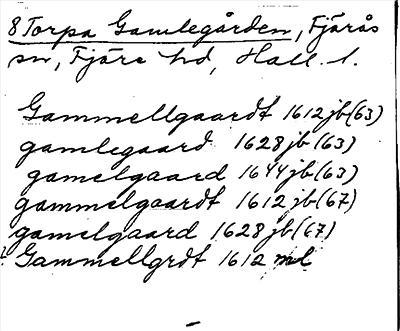 8 Torpa Gamlegården, Fjärås
sn, Fjäre hd, Hall. l.
Gammellgaardt 1612 jb (63)
gamlegaard 1628 jb (63)
gamelgaard 1644 jb (63)
gammelgaardt 1612 jb (67)
gamelgaard 1628 jb (67)
Gammellgrdt 1612 ml